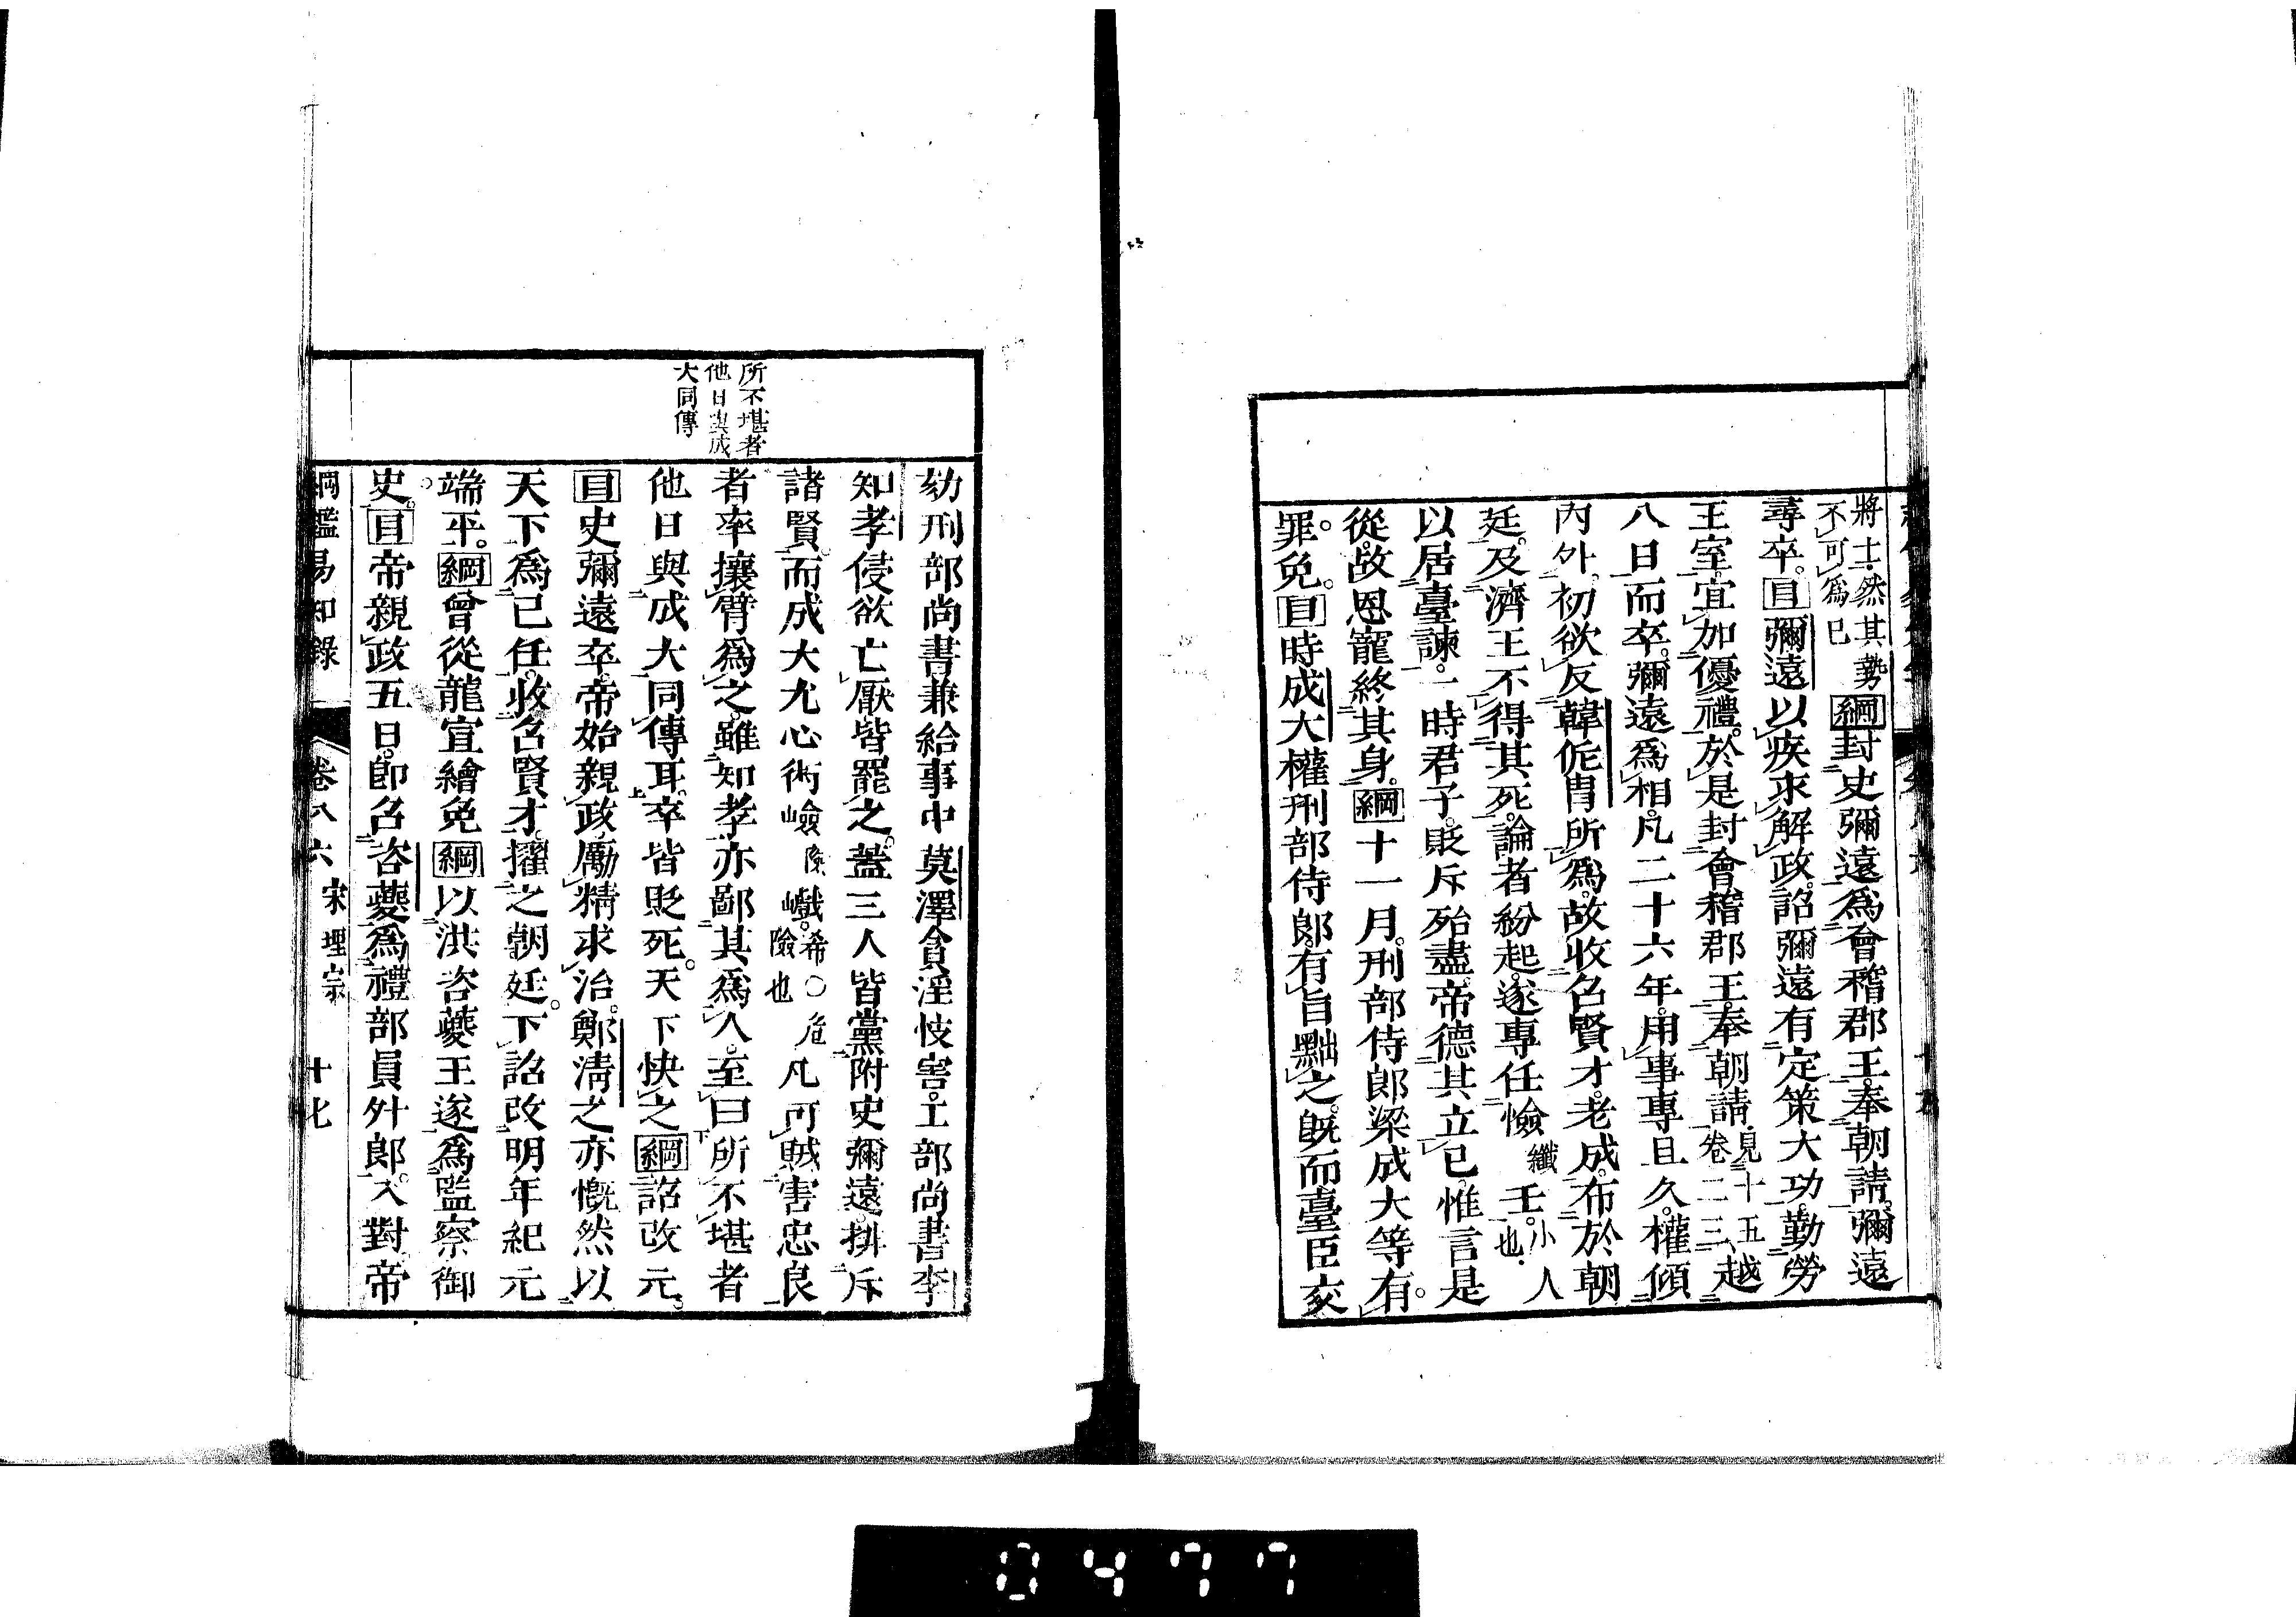 將士然其勢
不可為已
綱封史彌遠為會稽郡王奉朝請彌遠
尋卒。目彌遠以疾求解政詔彌遠有定策大功勤勞
王室宜加優禮於是封會稽郡王奉朝請見十五
卷二三越
八日而卒彌遠為相凡二十六年用事專且久權傾
內外初欲反韓侂冑所為故收召賢才老成布於朝
廷及濟王不得其死論者紛起遂專任憸纖壬小人
也
以居臺諫一時君子貶斥殆盡帝德其立已惟言是
從故恩寵終其身。綱十一月刑部侍郎梁成大等有
罪免。目時成大權刑部侍郎有旨黜之既而臺臣交
所不堪者
他日與成
大同傳
劾刑部尚書兼給事中莫澤貪淫忮害工部尚書李
知孝侵欲亡厭皆罷之蓋三人皆黨附史彌遠排斥
諸賢而成大尤心術嶮險巇希○危
險也
凡可賊害忠良
者率攘臂為之雖知孝亦鄙其為人至曰所不堪者
他日與成大同傳耳卒皆貶死。天下快之綱詔改元。
目史彌遠卒帝始親政勵精求治鄭清之亦慨然以
天下為己任收召賢才擢之朝廷。下詔改明年紀元
端平。綱曾從龍宣繒免綱以洪咨夔王遂為監察御
史目帝親政五日即召咨夔為禮部員外郎入對帝
綱鑑易知錄 卷八六 宋理宗 十七